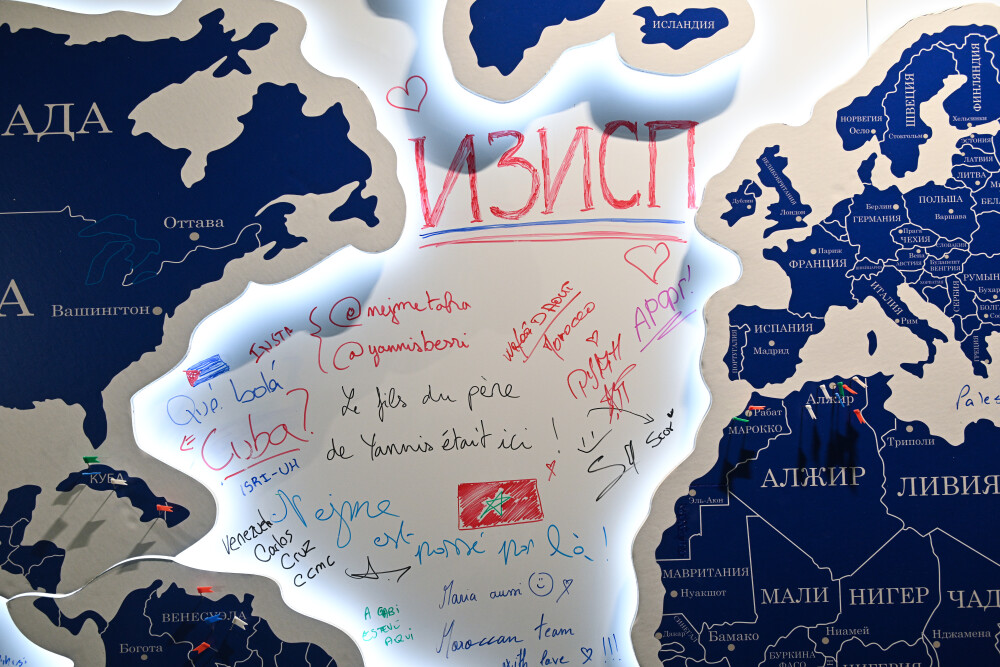 ИСЛАНДИЯ
АДА
ИЗИСП
НОРВЕГИЯ
Осло
ШВЕЦИЯ
Стокгольм
ФИНЛЯНДИЯ
Хельсинки
ЭСТОНИЯ
ЛАТВИЯ
ЛИТВА
ВЕЛИКОБРИТАНИЯ
Дублин
Лондон
Берлин
ГЕРМАНИЯ
ПОЛЬША
Варшава
БЕЛ
Прага
ЧЕХИЯ
СЛОВАКИЯ
Вена
АВСТРИЯ
Будапешт
ВЕНГРИЯ
Париж
ФРАНЦИЯ
РУМЫН
Бухар
СЕРБИЯ
БОЛГ
ИТАЛИЯ
Рим
ИСПАНИЯ
Мадрид
ПОРТУГАЛИЯ
Оттава
А
Вашингтон
INSTA
@nejmetaha
@yannisbessi
Wafaâ DAOUI
Morocco
АРОРГ!
Qué bolá
Cuba?
ISRI-UH
Le fils du père
de Yannis était ici !
Nejme
est passé par là !
Venezuela
Carlos
Cruz
CCMC
Maria aussi
A GABI
ESTEVE
AQUI
Moroccan team
with love !!!
КУБА
ВЕНЕСУЭЛА
Богота
Рабат
МАРОККО
Алжир
АЛЖИР
Триполи
ЛИВИЯ
Pales
Эль-Аюн
МАВРИТАНИЯ
Нуакшот
МАЛИ
НИГЕР
ЧАД
СЕНЕГАЛ
Дакар
Бамако
Ниамей
Нджамена
БУРКИНА
ФАСО